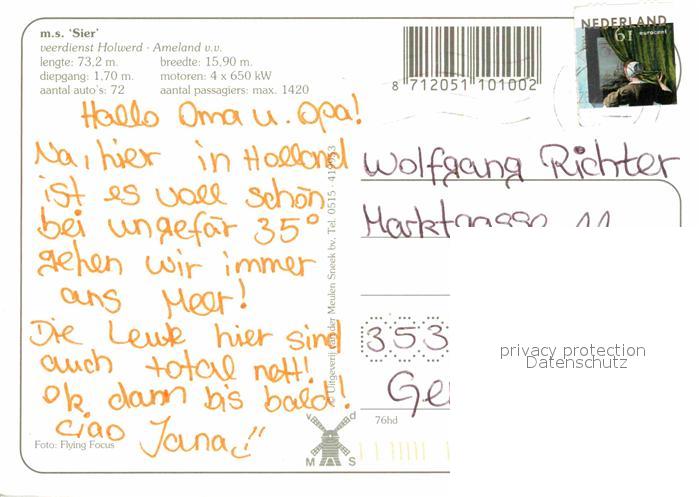 m.s. 'Sier'
veerdienst Holwerd · Ameland v.v.
lengte: 73,2 m. breedte: 15,90 m.
diepgang: 1,70 m. motoren: 4 x 650 kW
aantal auto's: 72 aantal passagiers: max. 1420
8 712051 101002
NEDERLAND
61 eurocent
Hallo Oma u. Opa!
Na, hier in Holland
ist es voll schön
bei ungefär 35°
gehen wir immer
ans Meer!
Die Leute hier sind
auch total nett!
Ok dann bis bald!
ciao Jana
Wolfgang Richter
Marktgasse 11
353
Ge
privacy protection
Datenschutz
© Uitgeverij van der Meulen Sneek bv. Tel. 0515
76hd
v d
M S
Foto: Flying Focus